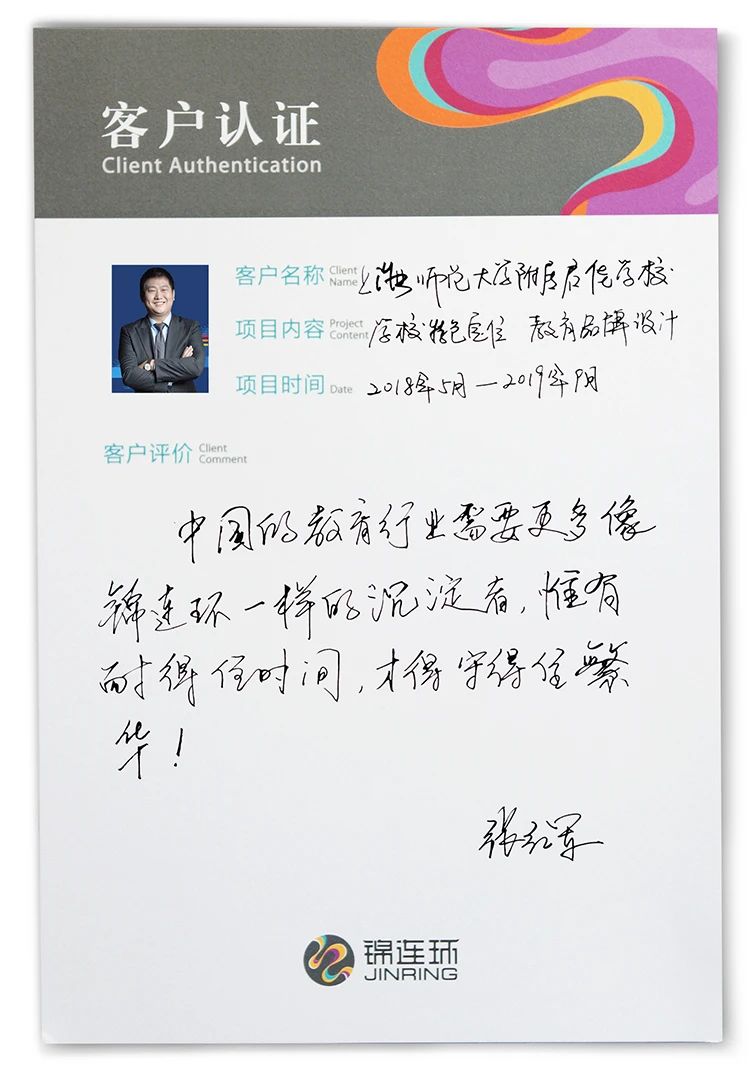 客户认证
Client Authentication
客户名称 Client Name 师范大学附属君偃学校
项目内容 Project Content 学校特色定位 教育品牌设计
项目时间 Date 2018年5月—2019年9月
客户评价 Client Comment
中国的教育行业需要更多像
锦连环一样的沉淀者,惟有
耐得住时间,才得守得住繁
华!
张红军
锦连环
JINRING